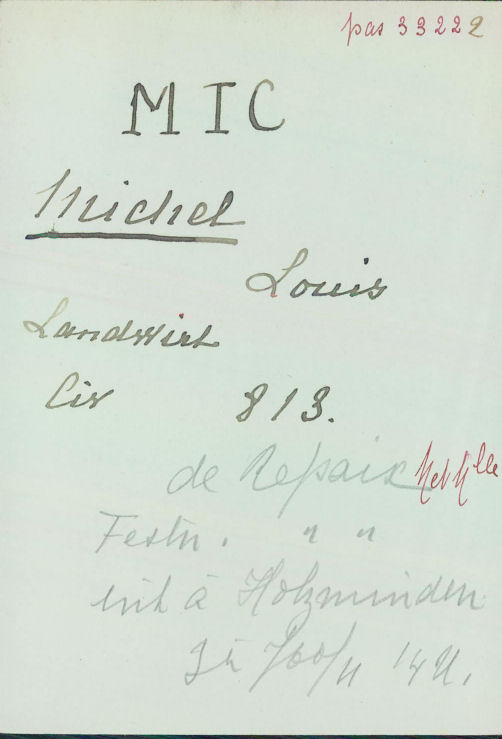 pas 33222
MIC
Michel
Louis
Landwirt
Civ 813.
de Repaix Met Mlle
Festn. " "
int à Holzminden